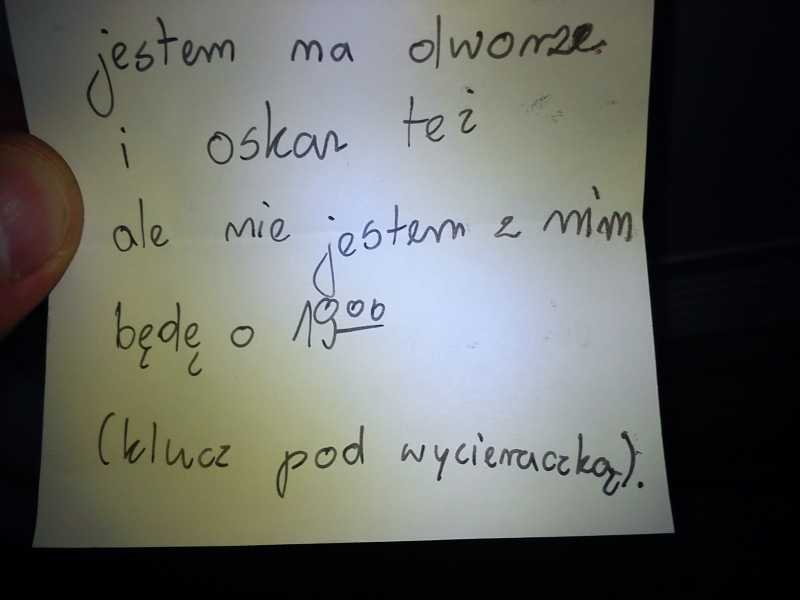 jestem na dworze
i oskar też
ale nie jestem z nim
będę o 19:00
(klucz pod wycieraczką).